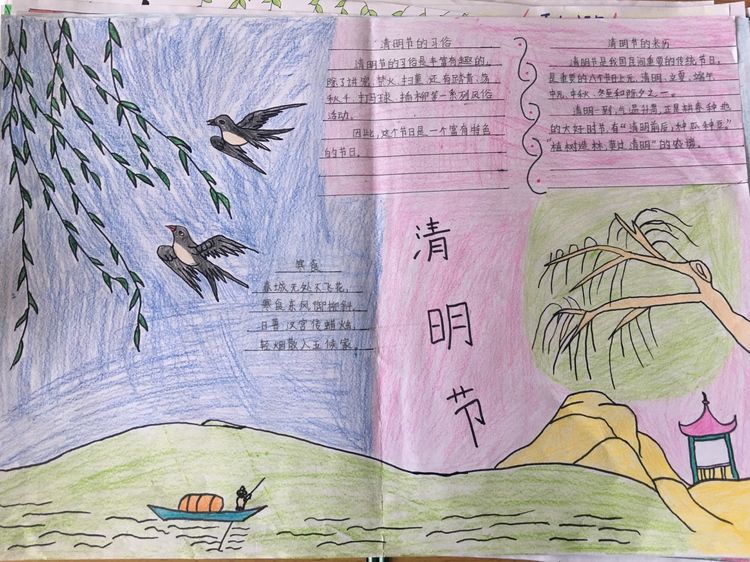 清明节的习俗
清明节的习俗是丰富有趣的,
除了讲究禁火、扫墓,还有踏青、荡
秋千、打马球、插柳等一系列风俗
活动。
因此,这个节日是一个富有特色
的节日。
清明节的来历
清明节是我国民间重要的传统节日。
是重要的"八个节日上元、清明、立夏、端午、
中元、中秋、冬至和除夕之一。
清明一到,气温升高,正是耕春种地
的大好时节,有"清明前后,种瓜种豆。"
"植树造林,莫过清明"的农谚。
寒食
春城无处不飞花,
寒食东风御柳斜。
日暮汉宫传蜡烛,
轻烟散入五侯家。
清
明
节